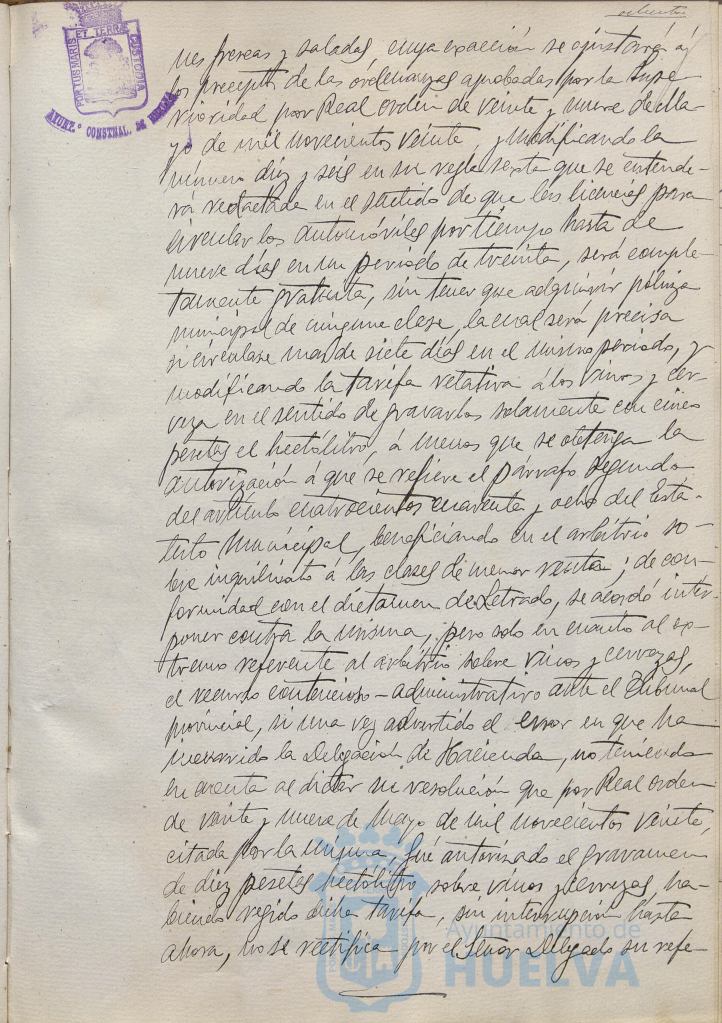 ochenta
nes frescas y saladas, cuya exacción se ajustará á
los preceptos de las ordenanzas aprobadas por la Supe-
rioridad por Real orden de veinte y nueve de Ma-
yo de mil novecientos veinte, y modificando la
número diez y seis en su regla sexta que se entende-
rá redactada en el sentido de que las licencias para
circular los automóviles por tiempo hasta de
nueve días en un periodo de treinta, será comple-
tamente gratuita, sin tener que adquirir póliza
municipal de ninguna clase, la cual será precisa
si circulase mas de siete días en el mismo periodo, y
modificando la tarifa relativa á los vinos y cer-
veza en el sentido de gravarlos solamente con cinco
pesetas el hectólitro, á menos que se obtenga la
autorización á que se refiere el párrafo segundo
del artículo cuatrocientos cuarenta y ocho del Esta-
tuto Municipal, beneficiando en el arbitrio so-
bre inquilinato á las clases de menor renta; de con-
formidad con el dictamen de Letrado, se acordó inter-
poner contra la misma, pero solo en cuanto al ex-
tremo referente al arbitrio sobre vinos y cervezas,
el recurso contencioso-administrativo ante el Tribunal
provincial, si una vez advertido el error en que ha
incurrido la Delegación de Hacienda, no teniendo
en cuenta al dictar su resolución que por Real orden
de veinte y nueve de Mayo de mil novecientos veinte,
citada por la misma, fué autorizado el gravamen
de diez pesetas hectólitro, sobre vinos y cervezas, ha-
biendo regido dicha tarifa, sin interrupción hasta
ahora, no se rectifica por el Señor Delegado su refe-
PORTUS MARIS ET TERRAE CUSTODIA
AYUNT.º CONSTNAL. DE HUELVA
Ayuntamiento de
HUELVA